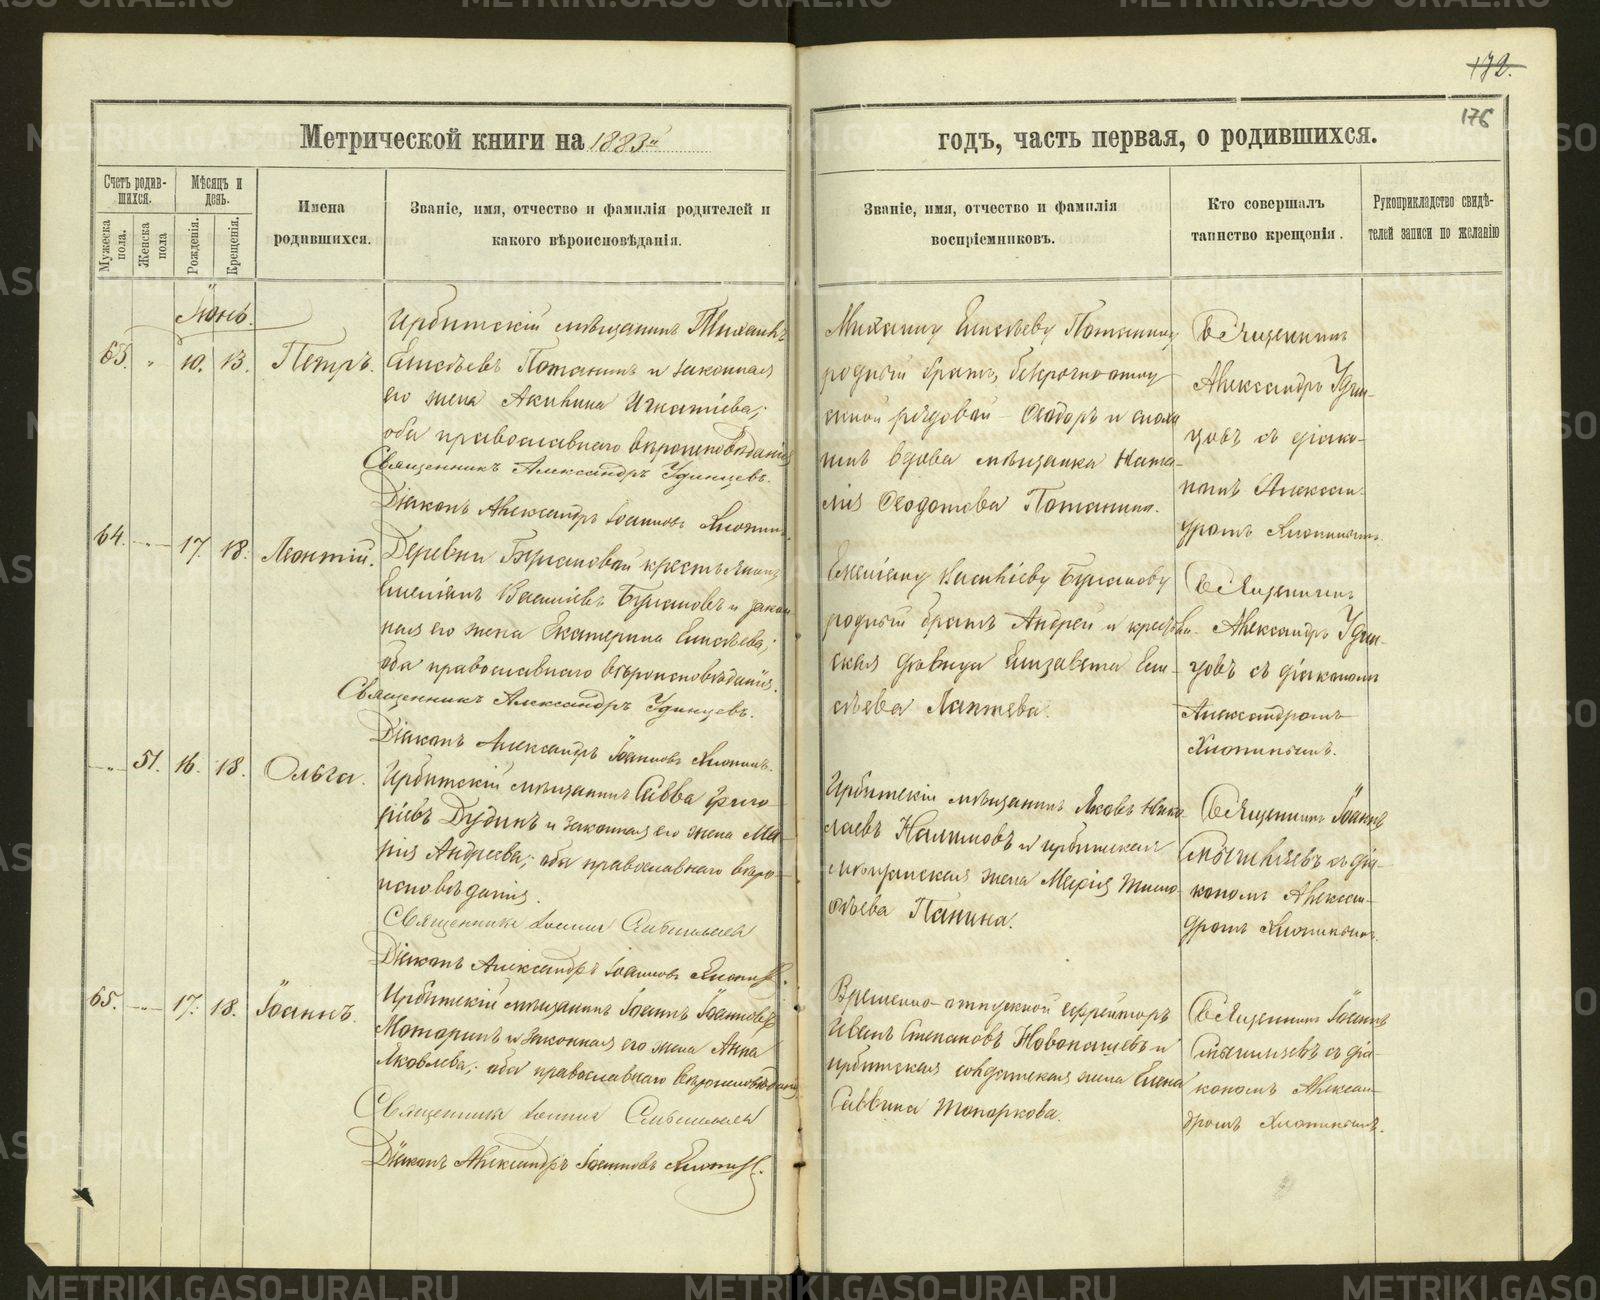 172.
176
Метрической книги на 1883й
годъ, часть первая, о родившихся.
Счетъ родив-
шихся.
Мѣсяцъ и
день.
Мужеска
пола.
Женска
пола
Рожденія.
Крещенія.
Имена
родившихся.
Званіе, имя, отчество и фамилія родителей и
какого вѣроисповѣданія.
Званіе, имя, отчество и фамилія
воспріемниковъ.
Кто совершалъ
таинство крещенія.
Рукоприкладство свидѣ-
телей записи по желанію
Іюнь.
63. " 10. 13. Петръ.
Ирбитскій мѣщанинъ Михаилъ
Елисѣевъ Потанинъ и законная
его жена Акилина Игнатіева;
оба православнаго вѣроисповѣданія
Священникъ Александръ Удинцевъ.
Діаконъ Александръ Іоанновъ
Михаилу Елисѣеву Потанину
родный братъ, безсрочноотпу-
скной рядовой Ѳедоръ и
вдова мѣщанка Ната-
лія Ѳедотова Потанина.
Священникъ
Александръ Удин-
цовъ съ діако-
номъ Алексан-
дромъ
64. " 17. 18. Леонтій.
Деревни Бурмаковой крестьянинъ
Емеліанъ Василіевъ и закон-
ная его жена Екатерина Елисѣева;
оба православнаго вѣроисповѣданія.
Священникъ Александръ Удинцевъ.
Діаконъ Александръ Іоанновъ
Емеліану Василіеву
родный братъ Андрей и крестьян-
ская дѣвица Елизавета Ели-
сѣева Лаптева.
Священникъ
Александръ Удин-
цовъ съ діакономъ
Александромъ
" 51. 16. 18. Ольга.
Ирбитскій мѣщанинъ Савва Григо-
ріевъ Дудинъ и законная его жена Ма-
рія Андреева; оба православнаго вѣро-
исповѣданія.
Священникъ Іоаннъ
Діаконъ Александръ Іоанновъ
Ирбитскій мѣщанинъ Яковъ Нико-
лаевъ Налимовъ и ирбитская
мѣщанская жена Марія Тимо-
ѳѣева Панина.
Священникъ Іоаннъ
съ діа-
кономъ Алексан-
дромъ
65. " 17. 18. Іоаннъ.
Ирбитскій мѣщанинъ Іоаннъ Іоанновъ
Моторинъ и законная его жена Анна
Яковлева; оба православнаго вѣроисповѣданія
Священникъ Іоаннъ
Діаконъ Александръ Іоанновъ
Временно-отпускной ефрейторъ
Иванъ Степановъ Новопашевъ и
ирбитская солдатская жена Елена
Саввина Топоркова.
Священникъ Іоаннъ
съ діа-
кономъ Алексан-
дромъ
METRIKI.GASO-URAL.RU